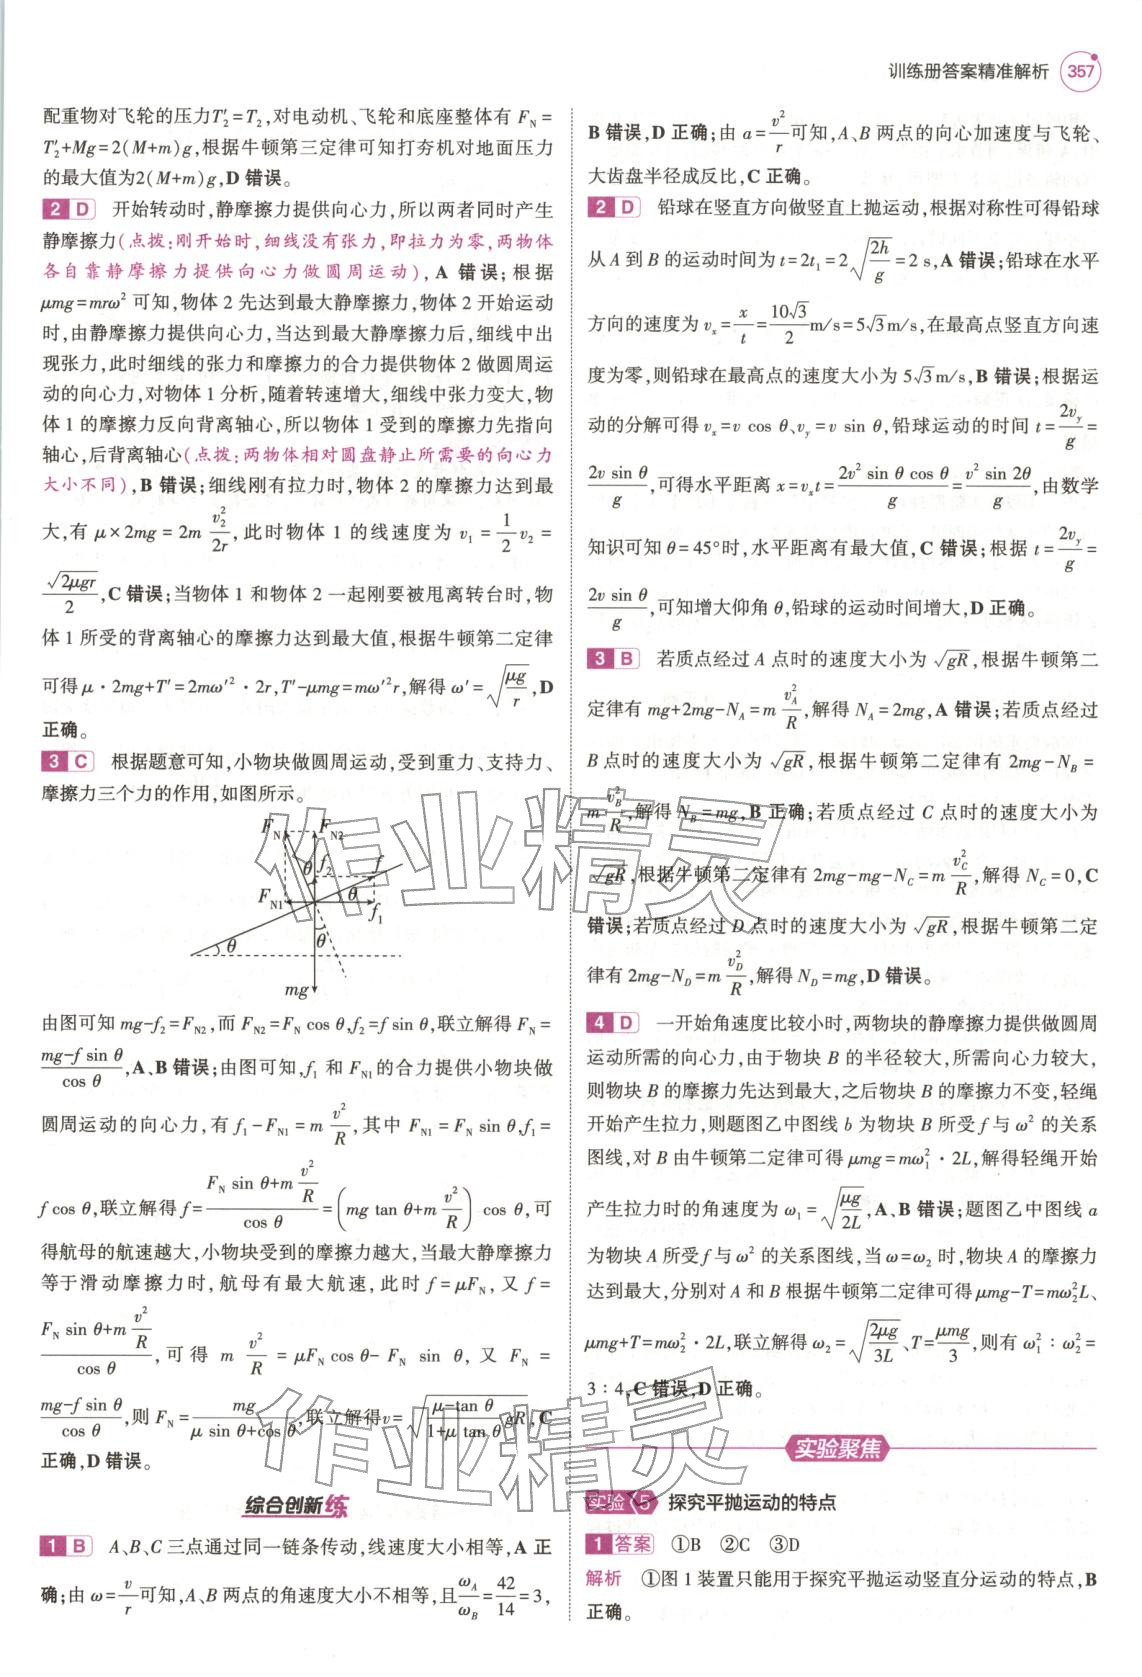 训练册答案精准解析 357
配重物对飞轮的压力T′₂=T₂,对电动机、飞轮和底座整体有 F_N=
T′₂+Mg=2(M+m)g,根据牛顿第三定律可知打夯机对地面压力
的最大值为2(M+m)g,D 错误。
2 D 开始转动时,静摩擦力提供向心力,所以两者同时产生
静摩擦力(点拨:刚开始时,细线没有张力,即拉力为零,两物体
各自靠静摩擦力提供向心力做圆周运动),A 错误;根据
μmg=mrω² 可知,物体 2 先达到最大静摩擦力,物体 2 开始运动
时,由静摩擦力提供向心力,当达到最大静摩擦力后,细线中出
现张力,此时细线的张力和摩擦力的合力提供物体 2 做圆周运
动的向心力,对物体 1 分析,随着转速增大,细线中张力变大,物
体 1 的摩擦力反向背离轴心,所以物体 1 受到的摩擦力先指向
轴心,后背离轴心(点拨:两物体相对圆盘静止所需要的向心力
大小不同),B 错误;细线刚有拉力时,物体 2 的摩擦力达到最
大,有 μ×2mg=2m v₂²/2r,此时物体 1 的线速度为 v₁=1/2 v₂=
√(2μgr)/2,C 错误;当物体 1 和物体 2 一起刚要被甩离转台时,物
体 1 所受的背离轴心的摩擦力达到最大值,根据牛顿第二定律
可得 μ·2mg+T′=2mω′²·2r,T′-μmg=mω′²r,解得 ω′=√(μg/r),D
正确。
3 C 根据题意可知,小物块做圆周运动,受到重力、支持力、
摩擦力三个力的作用,如图所示。
F_N F_N2
θ f₂ f
F_N1 θ f₁
θ θ
mg
由图可知 mg-f₂=F_N2,而 F_N2=F_N cos θ,f₂=f sin θ,联立解得 F_N=
(mg-f sin θ)/cos θ,A、B 错误;由图可知,f₁ 和 F_N1的合力提供小物块做
圆周运动的向心力,有 f₁-F_N1=m v²/R,其中 F_N1=F_N sin θ,f₁=
f cos θ,联立解得 f=(F_N sin θ+m v²/R)/cos θ=(mg tan θ+m v²/R) cos θ,可
得航母的航速越大,小物块受到的摩擦力越大,当最大静摩擦力
等于滑动摩擦力时,航母有最大航速,此时 f=μF_N,又 f=
(F_N sin θ+m v²/R)/cos θ,可得 m v²/R=μF_N cos θ-F_N sin θ,又 F_N=
(mg-f sin θ)/cos θ,则 F_N=mg/(μ sin θ+cos θ),联立解得v=√((μ-tan θ)/(1+μ tan θ) gR),C
正确,D 错误。
综合创新 练
1 B A、B、C 三点通过同一链条传动,线速度大小相等,A 正
确;由 ω=v/r可知,A、B 两点的角速度大小不相等,且ω_A/ω_B=42/14=3,
B 错误,D 正确;由 a=v²/r可知,A、B 两点的向心加速度与飞轮、
大齿盘半径成反比,C 正确。
2 D 铅球在竖直方向做竖直上抛运动,根据对称性可得铅球
从 A 到 B 的运动时间为 t=2t₁=2√(2h/g)=2 s,A 错误;铅球在水平
方向的速度为 vₓ=x/t=10√3/2 m/s=5√3 m/s,在最高点竖直方向速
度为零,则铅球在最高点的速度大小为 5√3 m/s,B 错误;根据运
动的分解可得 vₓ=v cos θ、v_y=v sin θ,铅球运动的时间 t=2v_y/g=
2v sin θ/g,可得水平距离 x=vₓt=2v² sin θ cos θ/g=v² sin 2θ/g,由数学
知识可知 θ=45°时,水平距离有最大值,C 错误;根据 t=2v_y/g=
2v sin θ/g,可知增大仰角 θ,铅球的运动时间增大,D 正确。
3 B 若质点经过 A 点时的速度大小为 √(gR),根据牛顿第二
定律有 mg+2mg-N_A=m v_A²/R,解得 N_A=2mg,A 错误;若质点经过
B 点时的速度大小为 √(gR),根据牛顿第二定律有 2mg-N_B=
m v_B²/R,解得 N_B=mg,B 正确;若质点经过 C 点时的速度大小为
√(gR),根据牛顿第二定律有 2mg-mg-N_C=m v_C²/R,解得 N_C=0,C
错误;若质点经过 D 点时的速度大小为 √(gR),根据牛顿第二定
律有 2mg-N_D=m v_D²/R,解得 N_D=mg,D 错误。
4 D 一开始角速度比较小时,两物块的静摩擦力提供做圆周
运动所需的向心力,由于物块 B 的半径较大,所需向心力较大,
则物块 B 的摩擦力先达到最大,之后物块 B 的摩擦力不变,轻绳
开始产生拉力,则题图乙中图线 b 为物块 B 所受 f 与 ω² 的关系
图线,对 B 由牛顿第二定律可得 μmg=mω₁²·2L,解得轻绳开始
产生拉力时的角速度为 ω₁=√(μg/2L),A、B 错误;题图乙中图线 a
为物块 A 所受 f 与 ω² 的关系图线,当 ω=ω₂ 时,物块 A 的摩擦力
达到最大,分别对 A 和 B 根据牛顿第二定律可得 μmg-T=mω₂²L、
μmg+T=mω₂²·2L,联立解得 ω₂=√(2μg/3L)、T=μmg/3,则有 ω₁²:ω₂²=
3:4,C 错误,D 正确。
实验聚焦
实验 5 探究平抛运动的特点
1 答案 ①B ②C ③D
解析 ①图 1 装置只能用于探究平抛运动竖直分运动的特点,B
正确。
作业精灵
作业精灵